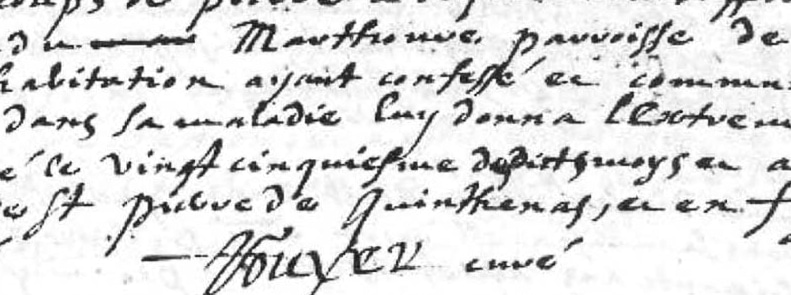 du Marthouve parroisse de
habitation ayant confessé et commun
dans sa maladie luy donna lextrem
é ce vingt cinquiesme desdits moys et a
de st pierre de Quinthenas, et en f
curé